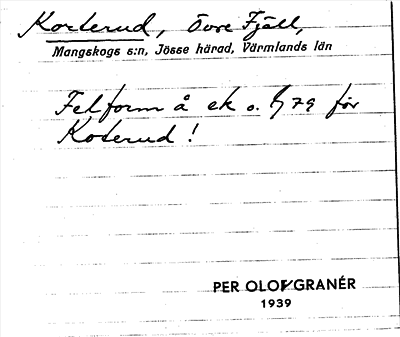 Korterud, Övre Fjäll,
Mangskogs s:n, Jösse härad, Värmlands län
Felform å ek o. 79 för
Koterud!
PER OLOF GRANÉR
1939